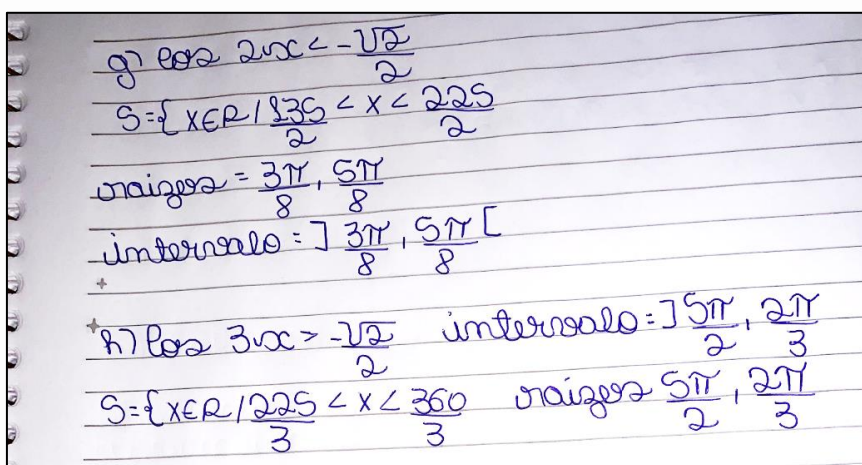 g) cos 2x < -√2/2
S={x∈R/135/2 < x < 225/2
raizes = 3π/8, 5π/8
intervalo = ]3π/8, 5π/8[
h) cos 3x > -√2/2 intervalo = ]5π/2, 2π/3
S={x∈R/225/3 < x < 360/3 raizes 5π/2, 2π/3